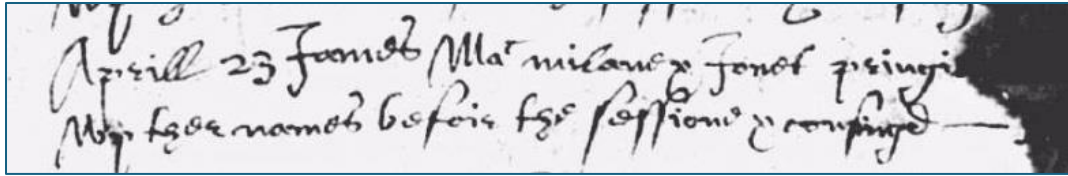 Aprill 23 James Mac milane & Jonet pringi
wp ther names befoir the sessione & consingd